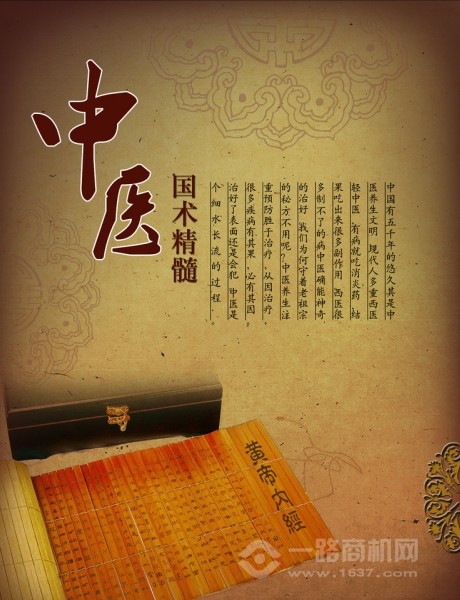 中医
国术精髓
中国有五千年的悠久其是中
医养生文明 现代人多重西医
轻中医 有病就吃消炎药 结
果吃出来很多副作用 西医很
多制不了的病中医确能神奇
的治好 我们为何守着老祖宗
的秘方不用呢?中医养生注
重预防胜于治疗 从因治疗,
很多疾病有其果,必有其因。
治好了表面还是会犯 中医是
个细水长流的过程……。
黄帝内經
一路商机网
www.1637.com